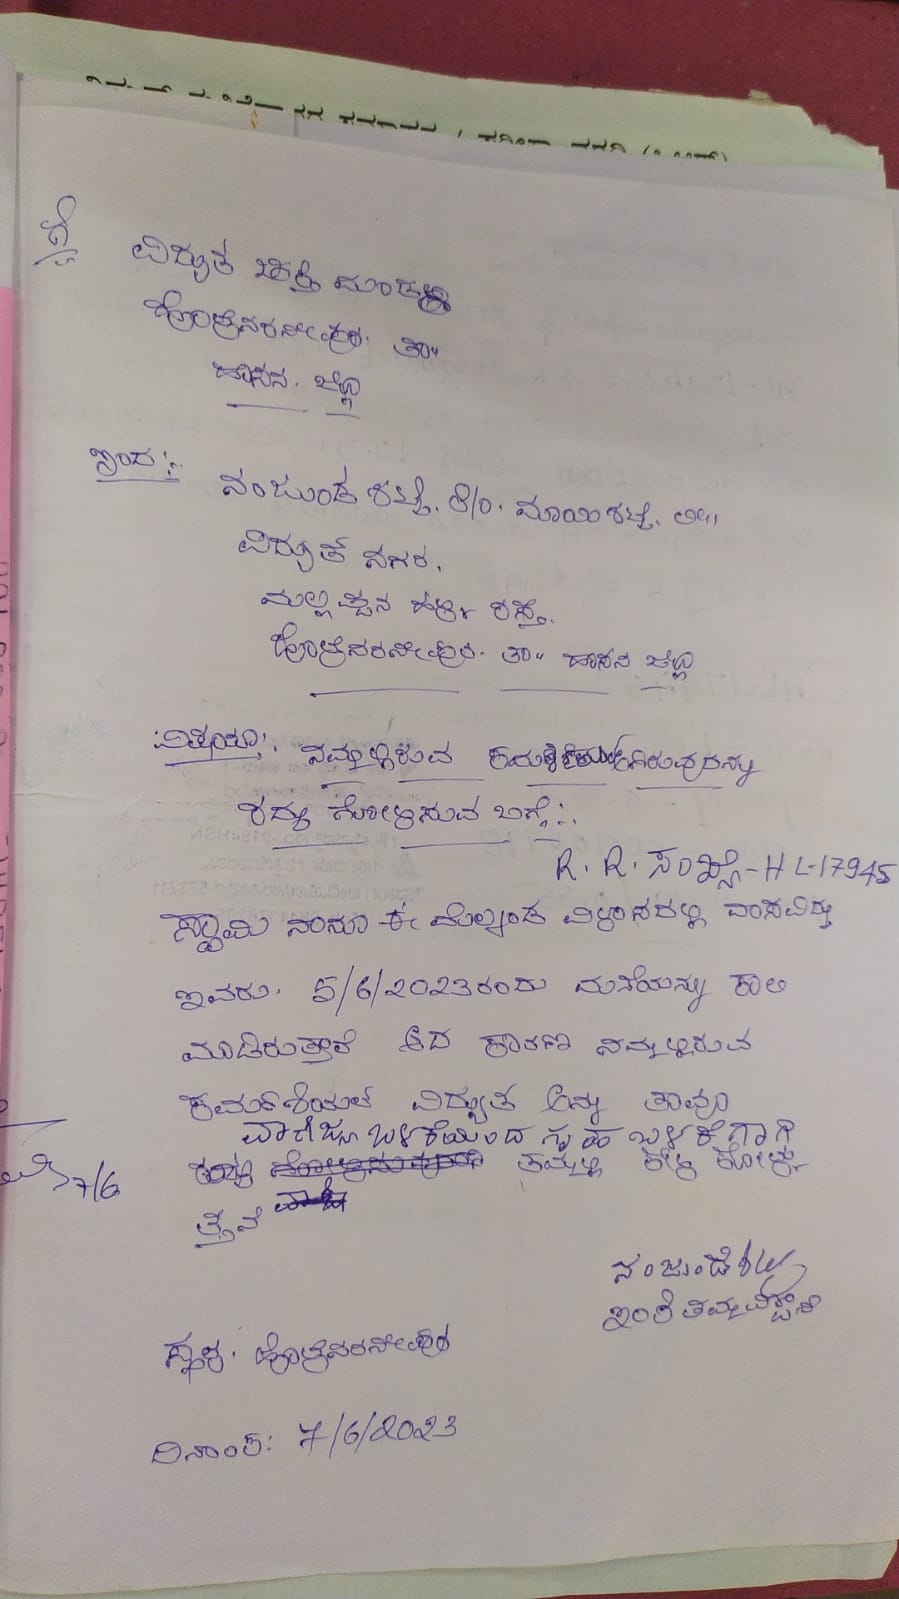 ಗೆ,
ವಿದ್ಯುತ ಚಕ್ತಿ ಮಂಡಳಿ
ಹೊಳೆನರಸೀಪುರ. ತಾ"
ಹಾಸನ. ಜಿಲ್ಲಾ
ಇಂದ:-
ನಂಜುಂಡ ಶೆಟ್ಟಿ. S/o. ಮಾಯಿಶೆಟ್ಟಿ.
ವಿದ್ಯುತ್ ನಗರ,
ಮಲ್ಲಪ್ಪನ ಹಳ್ಳಿ ರಸ್ತೆ.
ಹೊಳೆನರಸೀಪುರ. ತಾ" ಹಾಸನ ಜಿಲ್ಲಾ
ವಿಶಯ:. ನಮ್ಮಲ್ಲಿರುವ
ರದ್ದು ಗೋಳಿಸುವ ಬಗ್ಗೆ:.
R. R. ಸಂಖ್ಯೆ-HL-17945
ಸ್ವಾಮಿ ನಾನೂ ಈ ಮೇಲ್ಕಂಡ ವಿಳಾಸದಲ್ಲಿ ವಾಸವಿದ್ದು
ಇವರು. 5/6/2023ರಂದು ಮನೆಯನ್ನು ಕಾಲಿ
ಮಾಡಿರುತ್ತಾರೆ ಆದ ಕಾರಣ ನಮ್ಮಲ್ಲಿರುವ
ಕರ್ಮಶಿಯಲ್ ವಿದ್ಯುತ ಅನ್ನು ತಾವೂ
ವಾಣಿಜ್ಯ ಬಳಕೆಯಿಂದ ಗೃಹ ಬಳಕೆಗಾಗಿ
ತಮ್ಮಲ್ಲಿ ಕೇಳಿ ಕೊಳ್ಳು
ತ್ತೆನೆ
7/6
ನಂಜುಂಡಶೆಟ್ಟಿ
ಇಂತಿ ತಮ್ಮವಿಶ್ವಾಸಿ
ಸ್ಥಳ. ಹೊಳೆನರಸೀಪುರ
ದಿನಾಂಕ: 7/6/2023